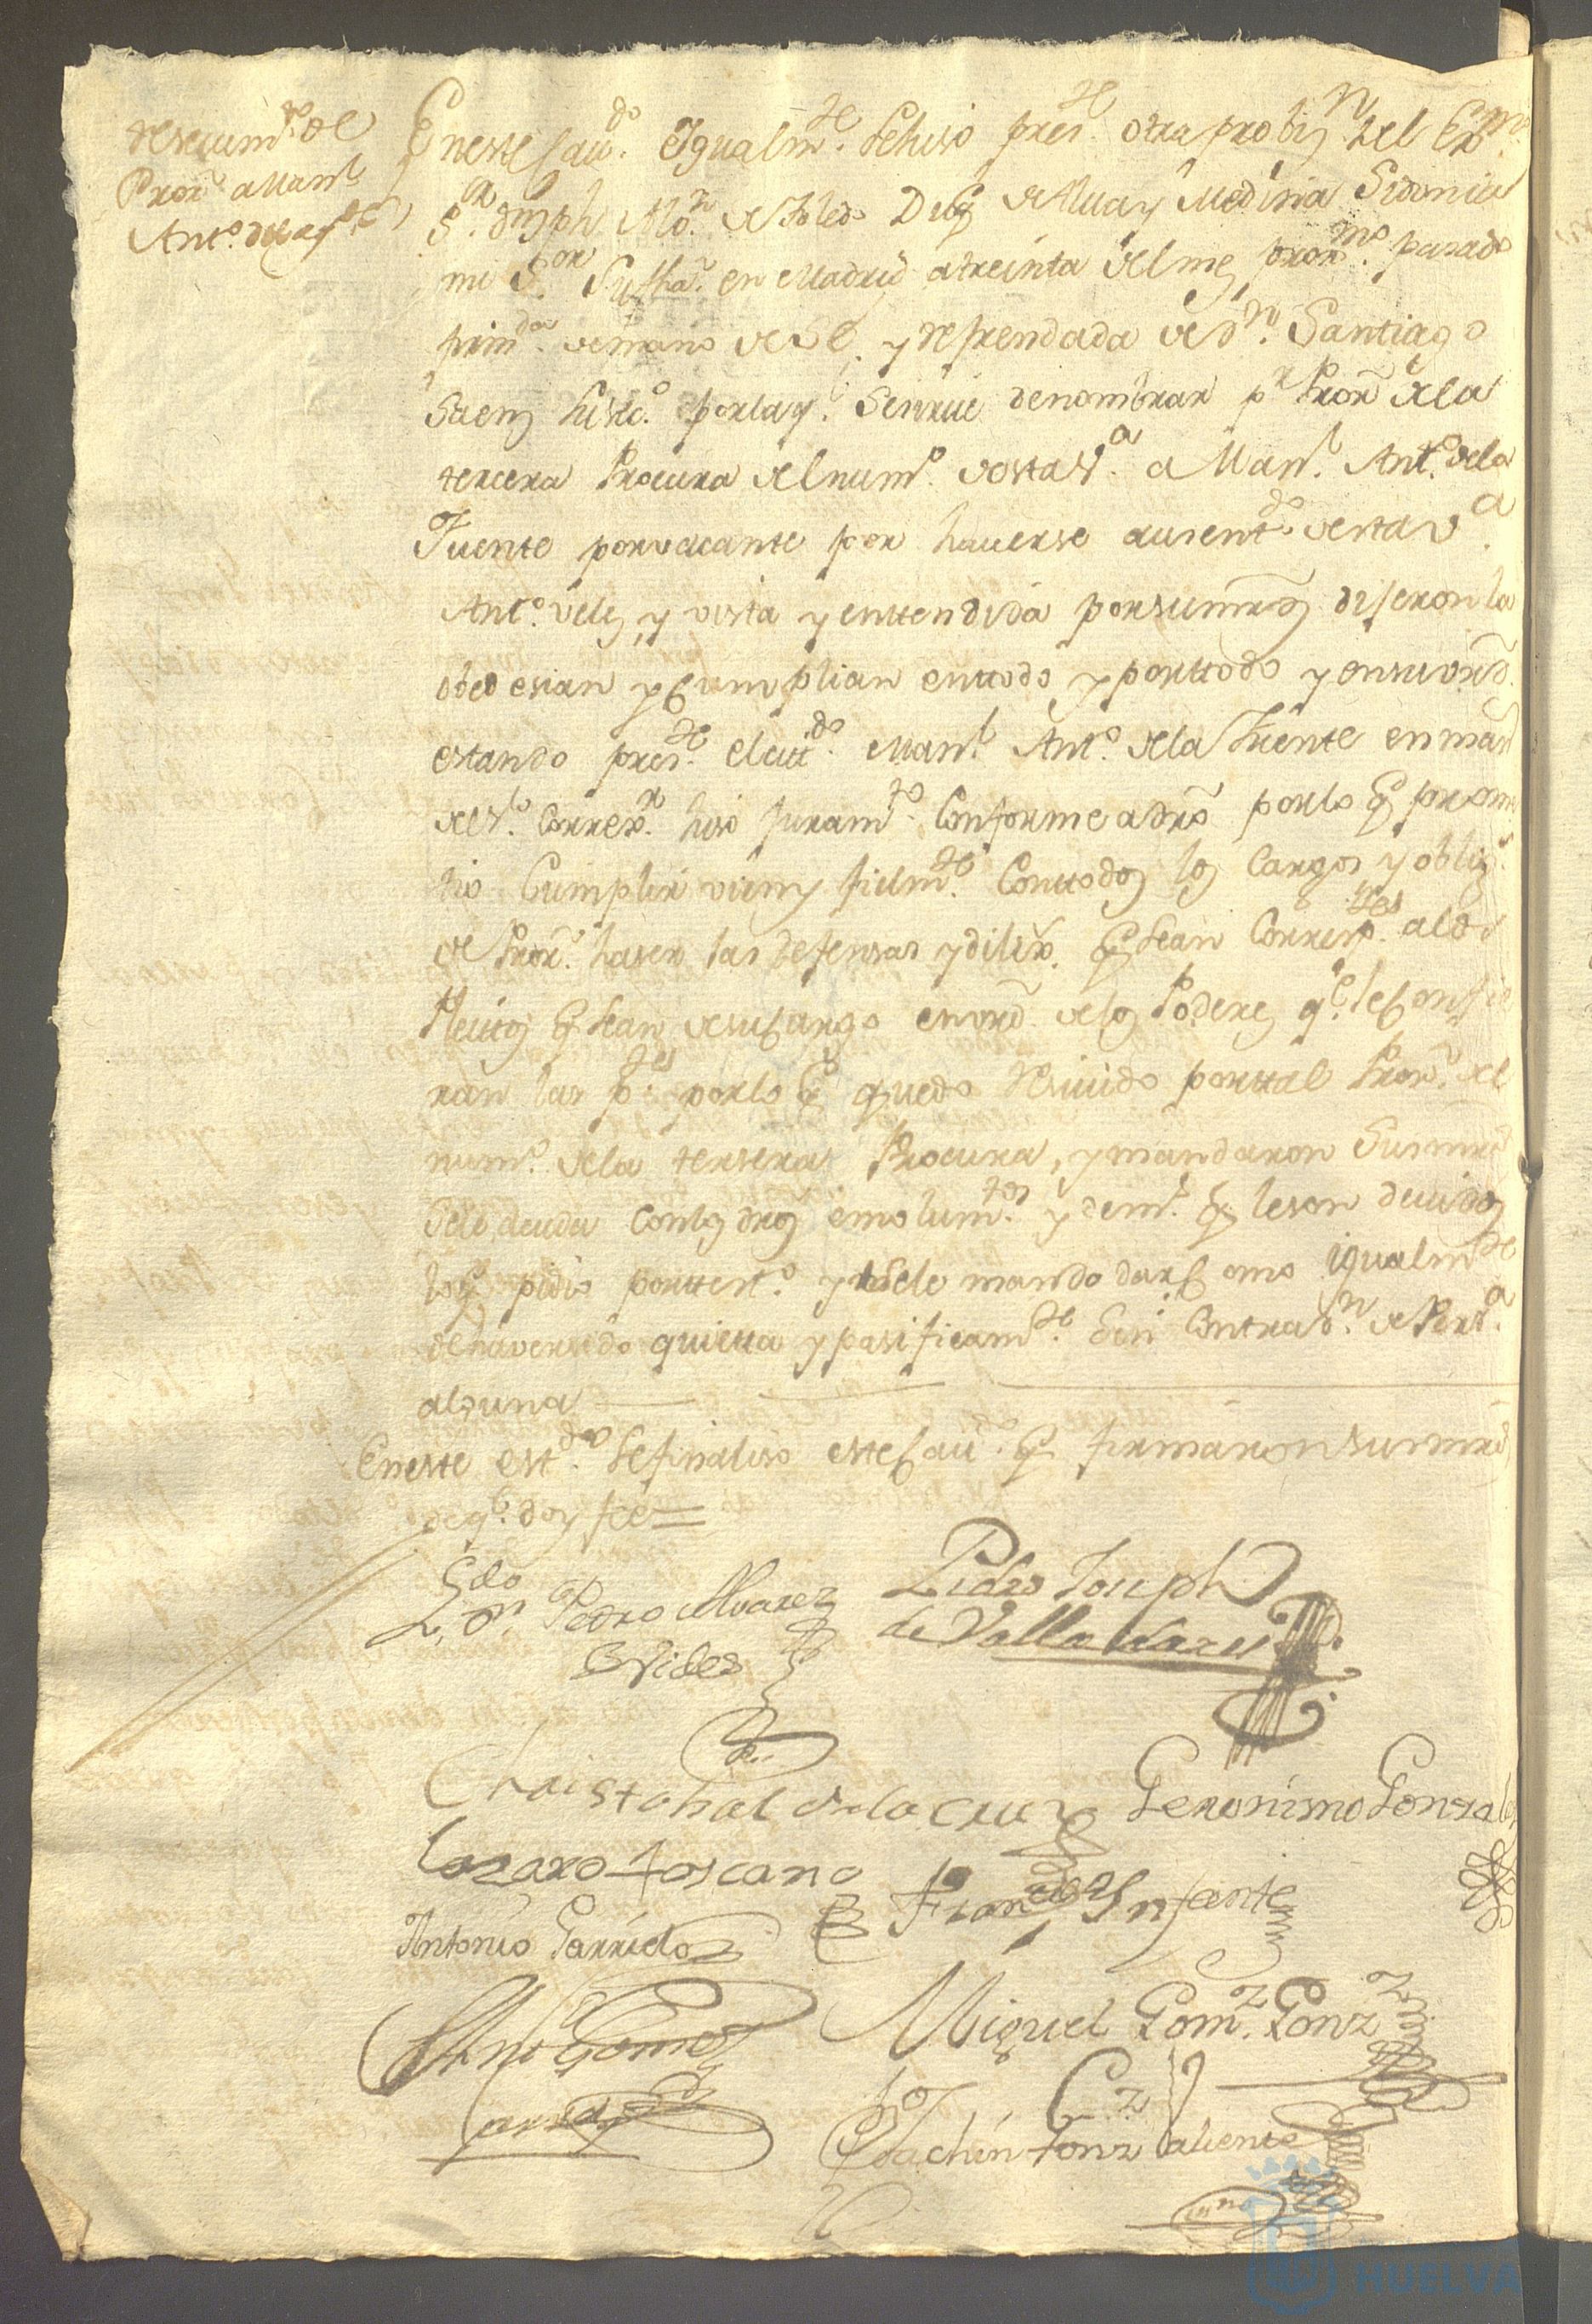 resevim.to de
Pror. a Man.l
Ant.o de la f.te
En este Cau.do Igualm.te se hiso pres.te otra probis.n del Ex.mo
S.r dn Jph Alo.z de Toledo Duq de Alva y Medina Sidonia
mi S.or Su fha. en Madrid a treinta del mes prox.mo pasado
firm.da de mano de S.E. y refrendada de D.n Santiago
Saenz su Sec.o por la q.l Se sirve de nombrar p.r Pror. de la
tercera Procura del num.o de esta V.a a Man.l Ant.o de la
Fuente por vacante por haverse ausent.do de esta V.a
Ant.o Velez, y vista y enttendida por sus mrds dijeron la
obedesian y Cumplian en ttodo y por ttodo y en su vird.
estando pres.te el citt.do Man.l Ant.o de la Fuente en man.
del S.r Correx.r hiso juram.to Conforme a dro por lo q prome
tio Cumplir vien y fielm.te Con ttodos los Cargos y oblig.s
de Pror. haser las defensas y dilix. q sean Corresp.tes a los
Pleittos q sean de su Cargo en vird. de los Poderes q.e le Confie
ran las p.tes por lo q quedo resivido por ttal Pror. del
num.o de la tersera Procura, y mandaron Sus mrds
Se le acuda Con los dros emolum.tos y dem.s q le son devidos
lo q pidio por ttest.o y se le mando dar Como igualm.te
de haver sido quietta y pasificam.te Sin Contrad.n de Pers.a
alguna
En este est.do se finaliso este Cau.do q firmaron sus mrds
de q.e doy fee=
L.do Dn. Pedro Alvarez
Bvides
Pedro Joseph
de Valladares
Christobal de la Cruz
Geronimo Gonzales
Lazaro toscano
Fran.co Infante
Antonio Garrido
Miguel Gom.z Gonz.z
Ant.o Gomez
Garzia
Joachin Gonz Valiente
HUELVA